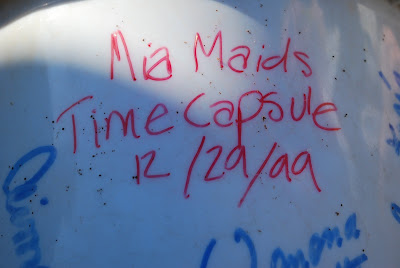 Mia Maids
Time Capsule
12/29/99